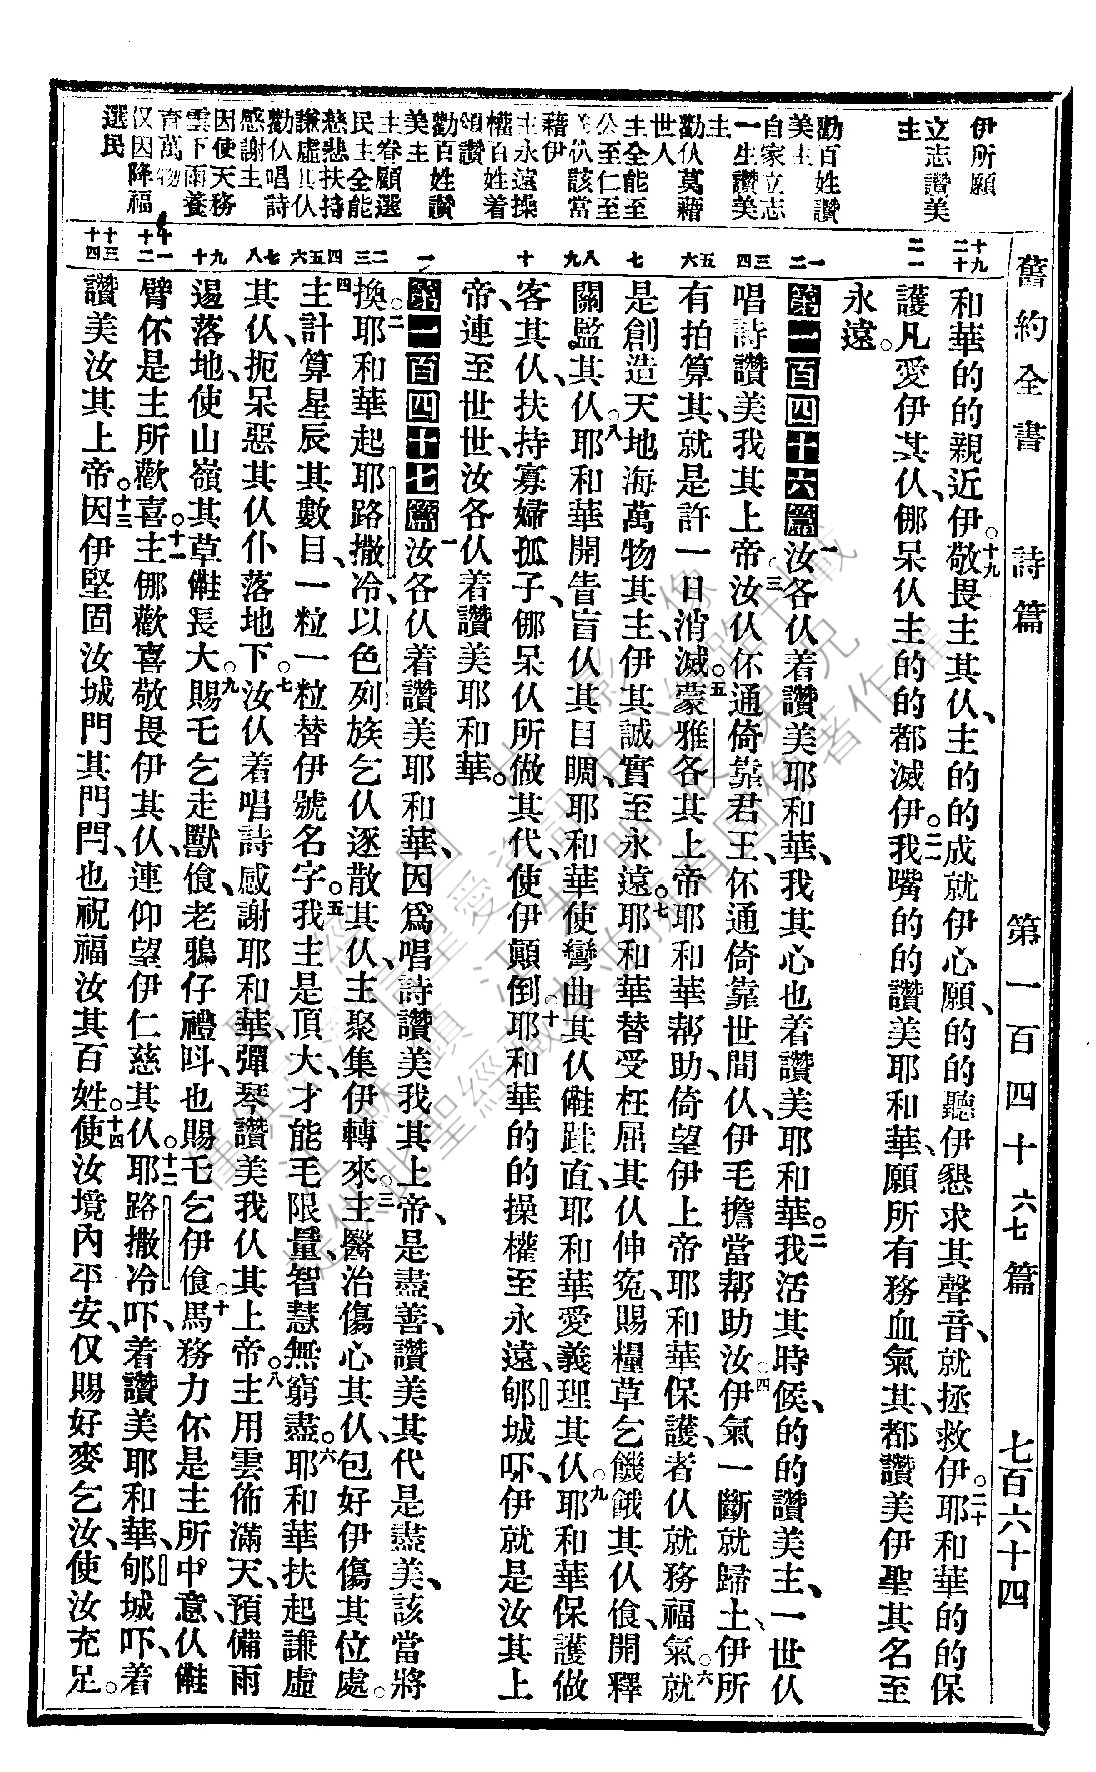 舊約全書 詩篇 第一百四十六七篇 七百六十四
伊所願
立志讚美
主
勸百姓讚
美主
自家立志
一生讚美
主
勸仈莫藉
世人
主全能至
公至仁至
仈該當
藉伊
主永遠操
權百姓着
頌讚
勸百姓讚
美主
主眷顧選
民主全能
慈悲扶持
謙虛其仈
勸仈唱詩
感謝主
因使天務
雲下雨養
育萬物
仅因降福
選民
十九 二十 二一 一二 三四 五六 七 八九 十 一 二三 四五六 七八 九十 十一 十二 十三 十四
和華的的親近伊。十九敬畏主其仈、主的的成就伊心願、的的聽伊懇求其聲音、就拯救伊。二十耶和華的的保
護凡愛伊其仈、㑚呆仈主的的都滅伊。二一我嘴的的讚美耶和華、願所有務血氣其、都讚美伊聖其名至
永遠。
第一百四十六篇 一汝各仈着讚美耶和華、我其心也着讚美耶和華。二我活其時候、的的讚美主、一世仈
唱詩讚美我其上帝。三汝仈伓通倚靠君王、伓通倚靠世間仈、伊毛擔當帮助汝。四伊氣一斷就歸土、伊所
有拍算其、就是許一日消滅。五蒙雅各其上帝耶和華帮助、倚望伊上帝耶和華保護者仈就務福氣。六就
是創造天地海萬物其主、伊其誠實至永遠。七耶和華替受枉屈其仈伸寃、賜糧草乞饑餓其仈飧、開釋
關監其仈。八耶和華開眚盲仈其目睭、耶和華使彎曲其仈會跬直、耶和華愛義理其仈。九耶和華保護做
客其仈、扶持寡婦孤子、㑚呆仈所做其代、使伊顚倒。十耶和華的的操權至永遠、郇城吓、伊就是汝其上
帝、連至世世、汝各仈着讚美耶和華。
第一百四十七篇 一汝各仈着讚美耶和華、因爲唱詩讚美我其上帝、是盡善、讚美其代是盡美、該當將
換。二耶和華起耶路撒冷、以色列族乞仈逐散其仈、主聚集伊轉來。三主醫治傷心其仈、包好伊傷其位處。
四主計算星辰其數目、一粒一粒替伊號名字。五我主是頂大、才能毛限量、智慧無窮盡。六耶和華扶起謙虛
其仈、扼呆惡其仈仆落地下。七汝仈着唱詩感謝耶和華、彈琴讚美我仈其上帝。八主用雲佈滿天、預備雨
遏落地、使山嶺其草會長大。九賜乇乞走獸飧、老鴉仔禮叫、也賜乇乞伊飧。十馬務力伓是主所中意、仈會
臂伓是主所歡喜。十一主㑚歡喜敬畏伊其仈、連仰望伊仁慈其仈。十二耶路撒冷吓、着讚美耶和華、郇城吓、着
讚美汝其上帝。十三因伊堅固汝城門其門閂、也祝福汝其百姓。十四使汝境內平安、仅賜好麥乞汝、使汝充足。